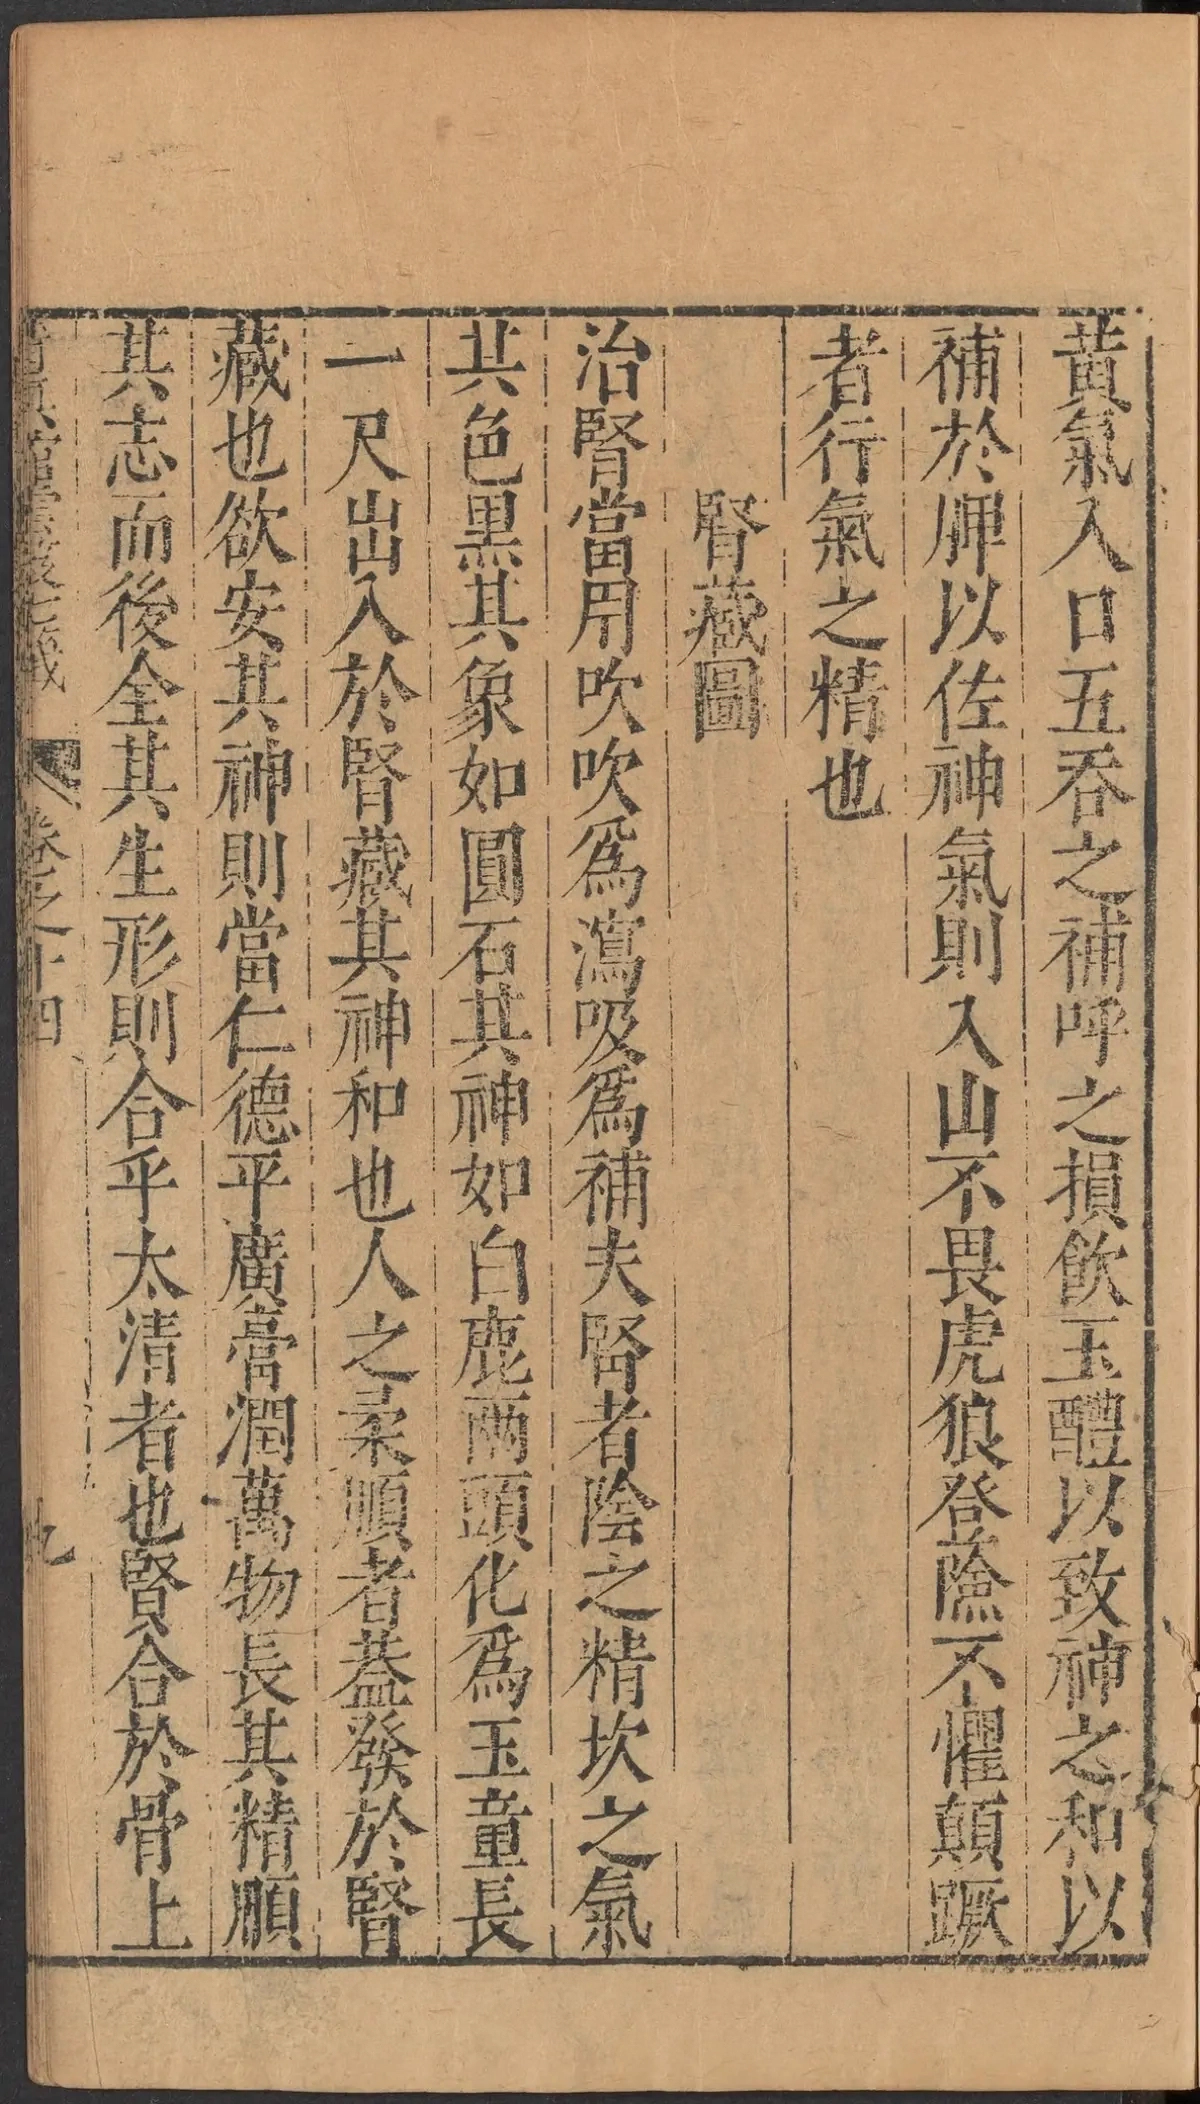 黃氣入口五吞之補呼之損飲玉醴以致神之和以
補於脾以佐神氣則入山不畏虎狼登險不懼顛蹶
者行氣之精也
腎藏圖
治腎當用吹吹爲瀉吸爲補夫腎者陰之精坎之氣
其色黑其象如圓石其神如白鹿兩頭化爲玉童長
一尺出入於腎藏其神和也人之柔順者葢發於腎
藏也欲安其神則當仁德平廣膏潤萬物長其精順
其志而後全其生形則合乎太清者也賢合於骨上
卷之十四
九